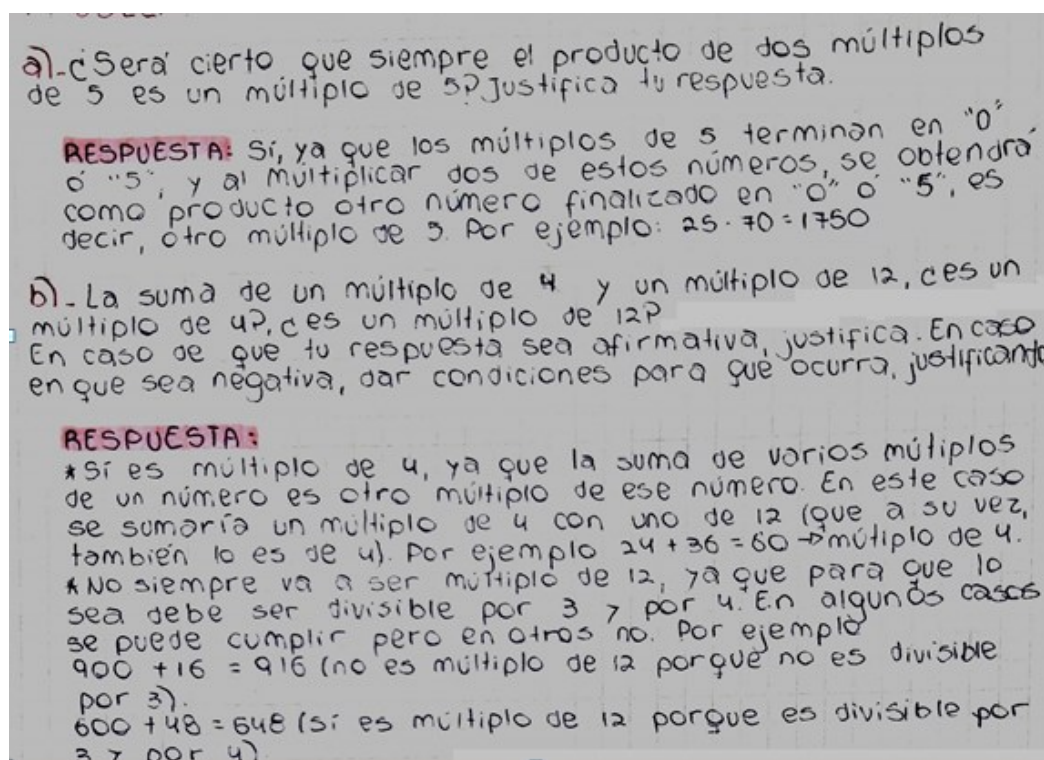 a).-¿Será cierto que siempre el producto de dos múltiplos
de 5 es un múltiplo de 5? Justifica tu respuesta.
RESPUESTA: Sí, ya que los múltiplos de 5 terminan en "0"
ó "5", y al multiplicar dos de estos números, se obtendrá
como producto otro número finalizado en "0" ó "5", es
decir, otro múltiplo de 5. Por ejemplo: 25 · 70 = 1750
b).- La suma de un múltiplo de 4 y un múltiplo de 12, ¿es un
múltiplo de 4?, ¿es un múltiplo de 12?
En caso de que tu respuesta sea afirmativa, justifica. En caso
en que sea negativa, dar condiciones para que ocurra, justificando
RESPUESTA:
*Sí es múltiplo de 4, ya que la suma de varios mútiplos
de un número es otro múltiplo de ese número. En este caso
se sumaría un múltiplo de 4 con uno de 12 (que a su vez,
también lo es de 4). Por ejemplo 24 + 36 = 60 → mútiplo de 4.
*No siempre va a ser múltiplo de 12, ya que para que lo
sea debe ser divisible por 3 y por 4. En algunos casos
se puede cumplir pero en otros no. Por ejemplo
900 + 16 = 916 (no es múltiplo de 12 porque no es divisible
por 3).
600 + 48 = 648 (sí es múltiplo de 12 porque es divisible por
3 y por 4)